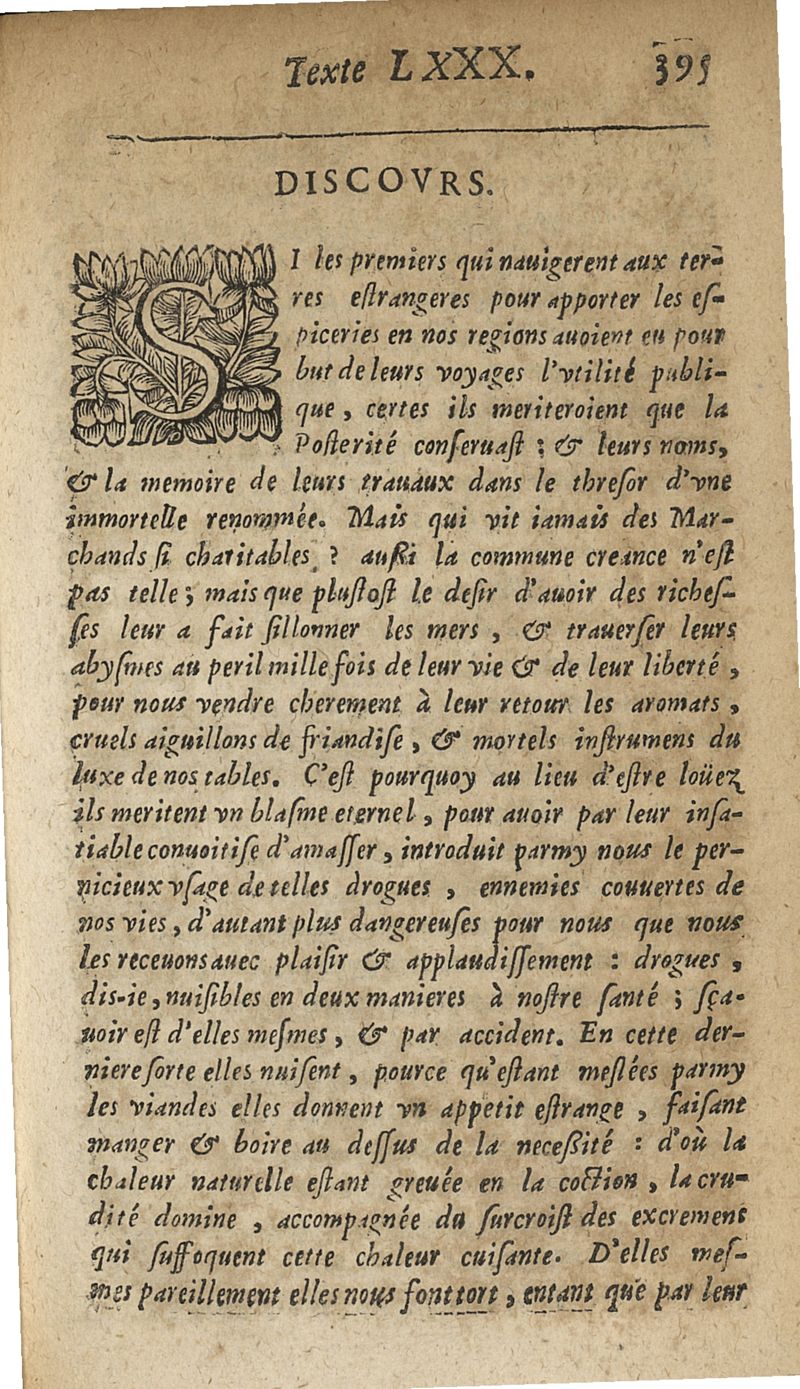 Texte LXXX. 395
DISCOVRS.
SI les premiers qui nauigerent aux ter-
res eſtrangeres pour apporter les eſ-
piceries en nos regions auoient eu pour
but de leurs voyages l'vtilité publi-
que, certes ils meriteroient que la
Poſterité conſeruaſt : & leurs noms,
& la memoire de leurs trauaux dans le threſor d'vne
immortelle renommée. Mais qui vit iamais des Mar-
chands ſi charitables ? auſſi la commune creance n'eſt
pas telle ; mais que pluſtoſt le deſir d'auoir des richeſ-
ſes leur a fait ſillonner les mers, & trauerſer leurs
abyſmes au peril mille fois de leur vie & de leur liberté,
pour nous vendre cherement à leur retour les aromats,
cruels aiguillons de friandiſe, & mortels inſtrumens du
luxe de nos tables. C'eſt pourquoy au lieu d'eſtre loüez
ils meritent vn blaſme eternel, pour auoir par leur inſa-
tiable conuoitiſe d'amaſſer, introduit parmy nous le per-
nicieux vſage de telles drogues, ennemies couuertes de
nos vies, d'autant plus dangereuſes pour nous que nous
les receuons auec plaiſir & applaudiſſement : drogues,
dis-ie, nuiſibles en deux manieres à noſtre ſanté ; ſça-
uoir eſt d'elles meſmes, & par accident. En cette der-
niere ſorte elles nuiſent, pource qu'eſtant meſlées parmy
les viandes elles donnent vn appetit eſtrange, faiſant
manger & boire au deſſus de la neceſſité : d'où la
chaleur naturelle eſtant greuée en la coction, la cru-
dité domine, accompagnée du ſurcroiſt des excremens
qui ſuffoquent cette chaleur cuiſante. D'elles meſ-
mes pareillement elles nous font tort, entant que par leur